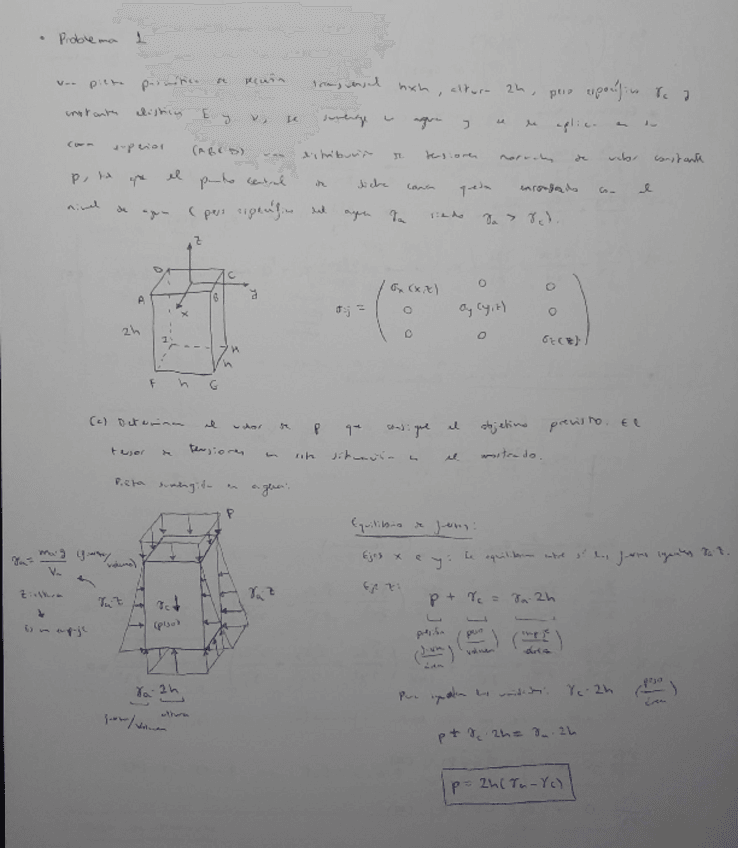 • Problema 1
Una pieza prismática de sección transversal hxh, altura 2h, peso específico γc y
constantes elásticas E y ν, se sumerge en agua y se le aplica en su
cara superior (ABCD) una distribución de tensiones normales de valor constante
p, tal que el punto central de dicha cara queda enrasado con el
nivel de agua (peso específico del agua γa siendo γa > γc).
z
D
C
A
B
y
x
2h
I
H
h
F h G
σij = ( σx(x,z) 0 0
0 σy(y,z) 0
0 0 σz(z) )
(a) Determinar el valor de p que consigue el objetivo previsto. El
tensor de tensiones en esta situación es el mostrado.
Pieza sumergida en agua:
p
γa = ma·g / Va (fuerza/volumen)
z: altura
Es un empuje
γa·z
γc ↓
(peso)
γa·z
γa · 2h
fuerza/volumen
altura
Equilibrio de fuerzas:
Ejes x e y: Se equilibran entre sí las fuerzas γa·z.
Eje z:
p + γc = γa·2h
presión (fuerza/área) (peso/volumen) (empuje/área)
Para igualar las unidades: γc·2h (peso/área)
p + γc·2h = γa·2h
p = 2h(γa-γc)